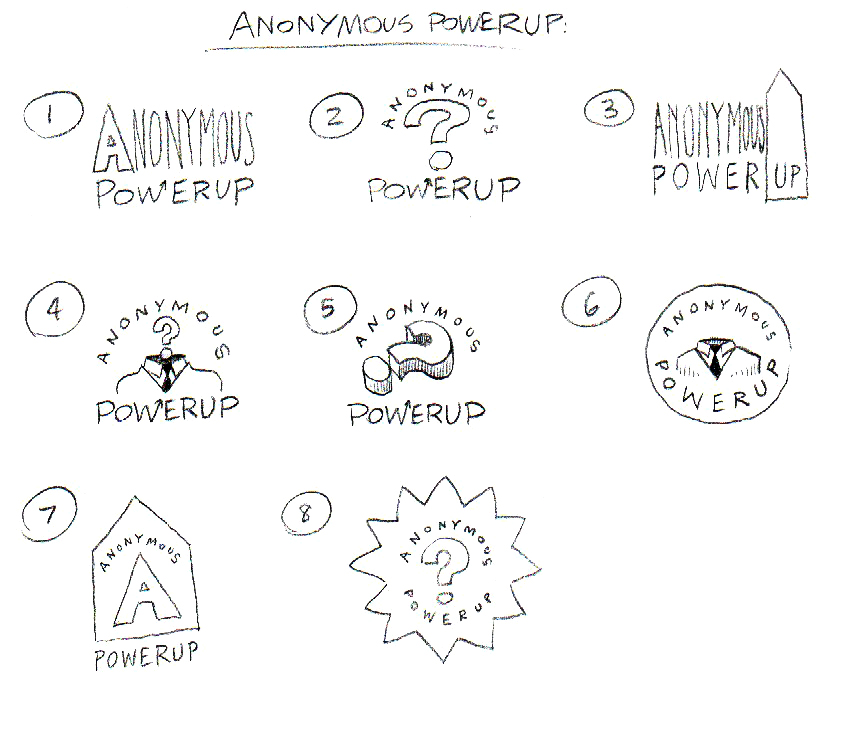 ANONYMOUS POWERUP:
1
ANONYMOUS
POWERUP
2
ANONYMOUS
?
POWERUP
3
ANONYMOUS
POWER UP
4
ANONYMOUS
?
POWERUP
5
ANONYMOUS
?
POWERUP
6
ANONYMOUS
POWERUP
7
ANONYMOUS
A
POWERUP
8
ANONYMOUS
?
POWERUP